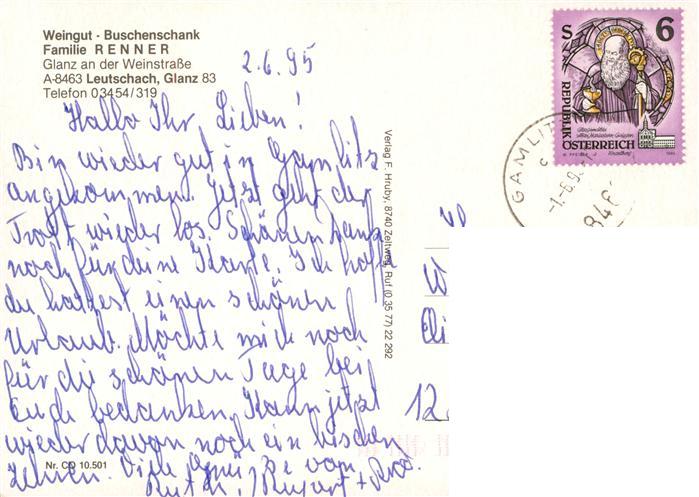 Weingut - Buschenschank
Familie RENNER
Glanz an der Weinstraße
A-8463 Leutschach, Glanz 83
Telefon 03454/319
2.6.95
Hallo Ihr Lieben!
Bin wieder gut in Gamlitz
angekommen. Jetzt geht der
Trott wieder los. Schönen Dank
noch für deine Karte. Ich hoffe
du hattest einen schönen
Urlaub. Möchte mich noch
für die schönen Tage bei
Euch bedanken. Kann jetzt
wieder davon noch ein bischen
zehren. Viele Grüße von
Ruth,
Nr. CO 10.501
Verlag F. Hruby, 8740 Zeltweg, Ruf (0 35 77) 22 292
S 6
REPUBLIK
ÖSTERREICH
GAMLIT
846
W
12